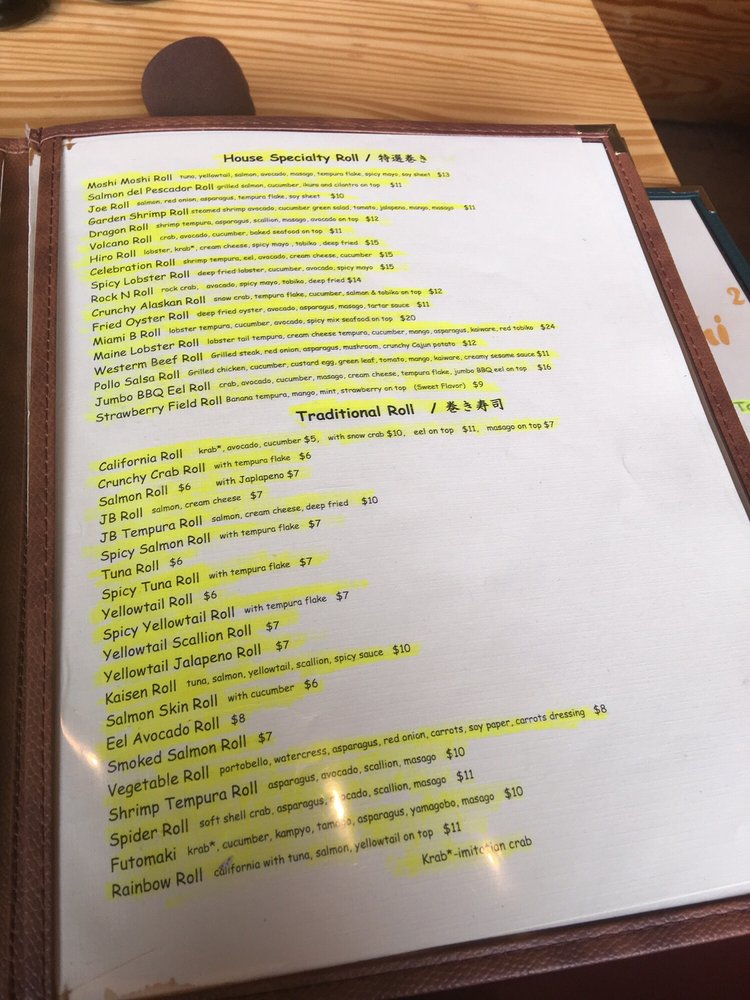 House Specialty Roll / 特選巻き
Moshi Moshi Roll tuna, yellowtail, salmon, avocado, masago, tempura flake, spicy mayo, soy sheet $13
Salmon del Pescador Roll grilled salmon, cucumber, ikura and cilantro on top $11
Joe Roll salmon, red onion, asparagus, tempura flake, soy sheet $10
Garden Shrimp Roll steamed shrimp avocado, cucumber green salad, tomato, jalapeno, mango, masago $11
Dragon Roll shrimp tempura, asparagus, scallion, masago, avocado on top $12
Volcano Roll crab, avocado, cucumber, baked seafood on top $11
Hiro Roll lobster, krab*, cream cheese, spicy mayo , tobiko , deep fried $15
Celebration Roll shrimp tempura, eel, avocado, cream cheese, cucumber $15
Spicy Lobster Roll deep fried lobster, cucumber, avocado, spicy mayo $15
Rock N Roll rock crab, avocado, spicy mayo, tobiko, deep fried $14
Crunchy Alaskan Roll snow crab, tempura flake, cucumber, salmon & tobiko on top $12
Fried Oyster Roll deep fried oyster, avocado, asparagus, masago, tartar sauce $11
Miami B Roll lobster tempura, cucumber, avocado, spicy mix seafood on top $20
Maine Lobster Roll lobster tail tempura, cream cheese tempura, cucumber, mango, asparagus, kaiware, red tobiko $24
Westerm Beef Roll Grilled steak, red onion, asparagus, mushroom, crunchy Cajun potato $12
Pollo Salsa Roll Grilled chicken, cucumber, custard egg, green leaf, tomato, mango, kaiware, creamy sesame sauce $11
Jumbo BBQ Eel Roll crab, avocado, cucumber, masago, cream cheese, tempura flake, jumbo BBQ eel on top $16
Strawberry Field Roll Banana tempura, mango, mint, strawberry on top (Sweet Flavor) $9
Traditional Roll / 巻き寿司
California Roll krab*, avocado, cucumber $5, with snow crab $10, eel on top $11, masago on top $7
Crunchy Crab Roll with tempura flake $6
Salmon Roll $6 with Japlapeno $7
JB Roll salmon, cream cheese $7
JB Tempura Roll salmon, cream cheese, deep fried $10
Spicy Salmon Roll with tempura flake $7
Tuna Roll $6
Spicy Tuna Roll with tempura flake $7
Yellowtail Roll $6
Spicy Yellowtail Roll with tempura flake $7
Yellowtail Scallion Roll $7
Yellowtail Jalapeno Roll $7
Kaisen Roll tuna, salmon, yellowtail, scallion, spicy sauce $10
Salmon Skin Roll with cucumber $6
Eel Avocado Roll $8
Smoked Salmon Roll $7
Vegetable Roll portobello, watercress, asparagus, red onion, carrots, soy paper, carrots dressing $8
Shrimp Tempura Roll asparagus, avocado, scallion, masago $10
Spider Roll soft shell crab, asparagus, avocado, scallion, masago $11
Futomaki krab*, cucumber, kampyo, tamago, asparagus, yamagobo, masago $10
Rainbow Roll california with tuna, salmon, yellowtail on top $11
Krab*-imitation crab